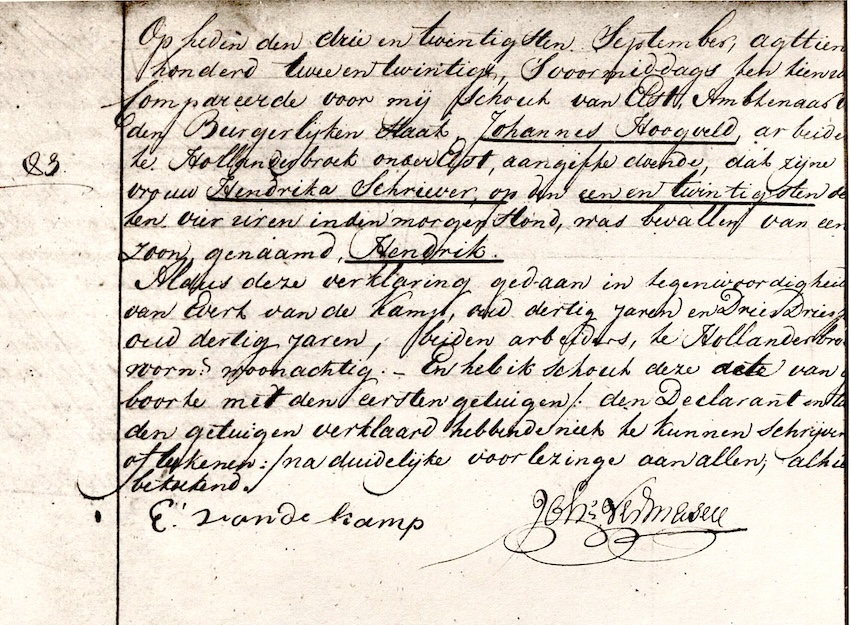 Op heden den drie en twintigsten September, agttien
honderd twee en twintig, Svoormiddags ten tien
Compareerde voor mij Schout van Elst, Ambtenaar
den Burgerlijken Staat, Johannes Hoogveld, arbeid
83
te Hollanderbroek onder Elst, aangifte doende, dat zijne
vrouw Hendrika Schriever, op den een en twintigsten de
ten vier uren in den morgen stond, was bevallen van een
zoon, genaamd, Hendrik.
Aldus deze verklaring gedaan in tegenwoordigheid
van Evert van de Kamp, oud dertig jaren en Dries Dries
oud dertig jaren, beiden arbeiders, te Hollanderbro
woonachtig. - En heb ik schout deze acte van
boorte met den eersten getuigen /: den Declarant en
den getuigen verklaard hebbende niet te kunnen schrijven
of teekenen :/ na duidelijke voorlezinge aan allen, alhie
beteekend.
E. van de kamp